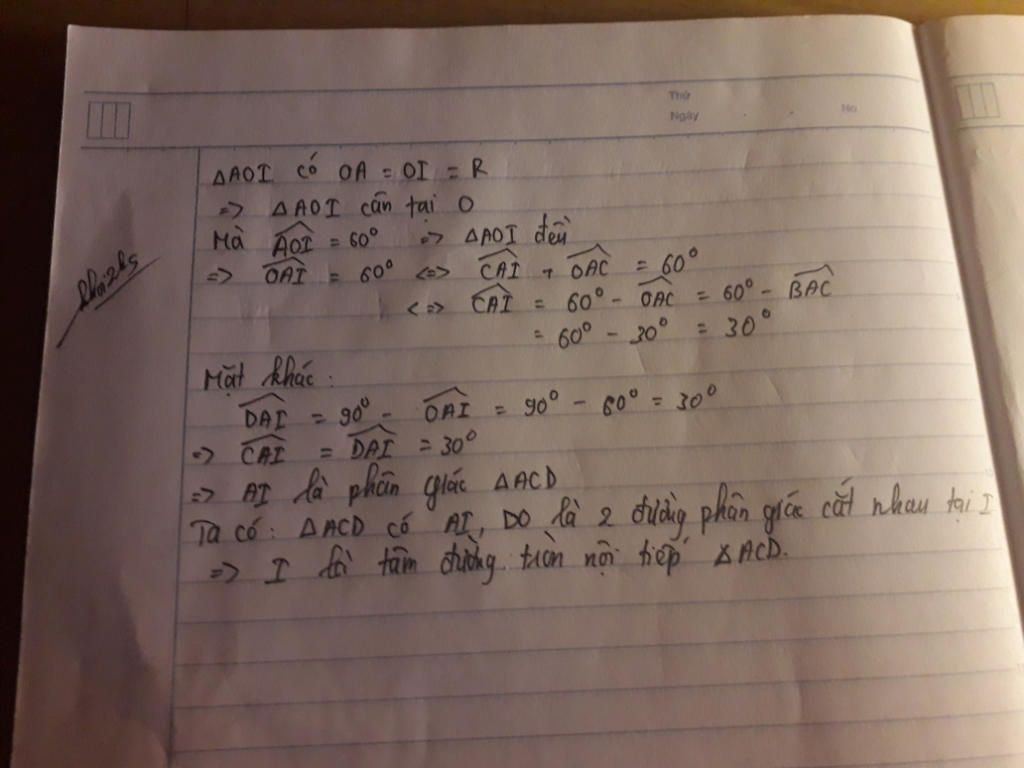 Thứ
Ngày
No
ΔAOI có OA = OI = R
=> ΔAOI cân tại O
Mà \widehat{AOI} = 60° => ΔAOI đều
=> \widehat{OAI} = 60° <=> \widehat{CAI} + \widehat{OAC} = 60°
<=> \widehat{CAI} = 60° - \widehat{OAC} = 60° - \widehat{BAC}
= 60° - 30° = 30°
Mặt khác:
\widehat{DAI} = 90° - \widehat{OAI} = 90° - 60° = 30°
=> \widehat{CAI} = \widehat{DAI} = 30°
=> AI là phân giác ΔACD
Ta có: ΔACD có AI, DO là 2 đường phân giác cắt nhau tại I
=> I là tâm đường tròn nội tiếp ΔACD.